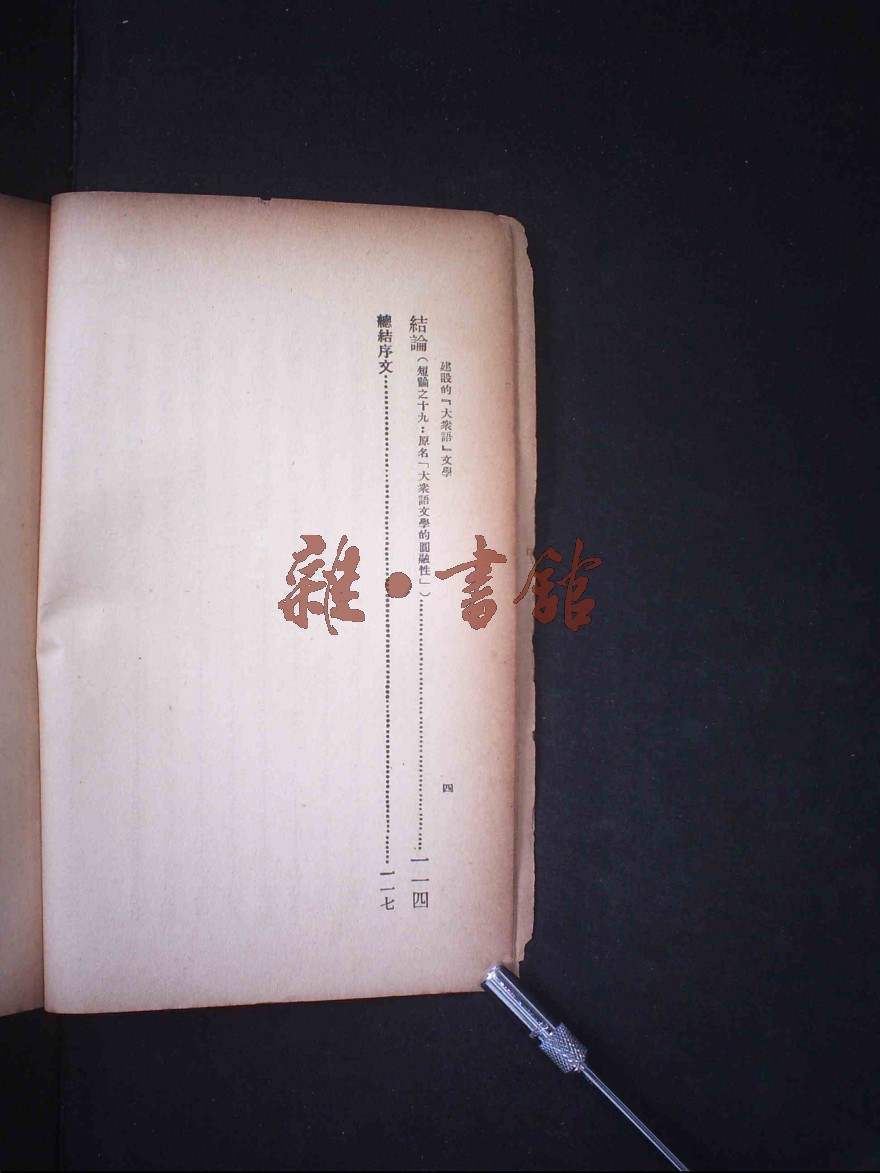 建設的『大衆語』文學
四
結論(短論之十九:原名「大衆語文學的圓融性」)……一一四
總結序文……一一七
雜·書館